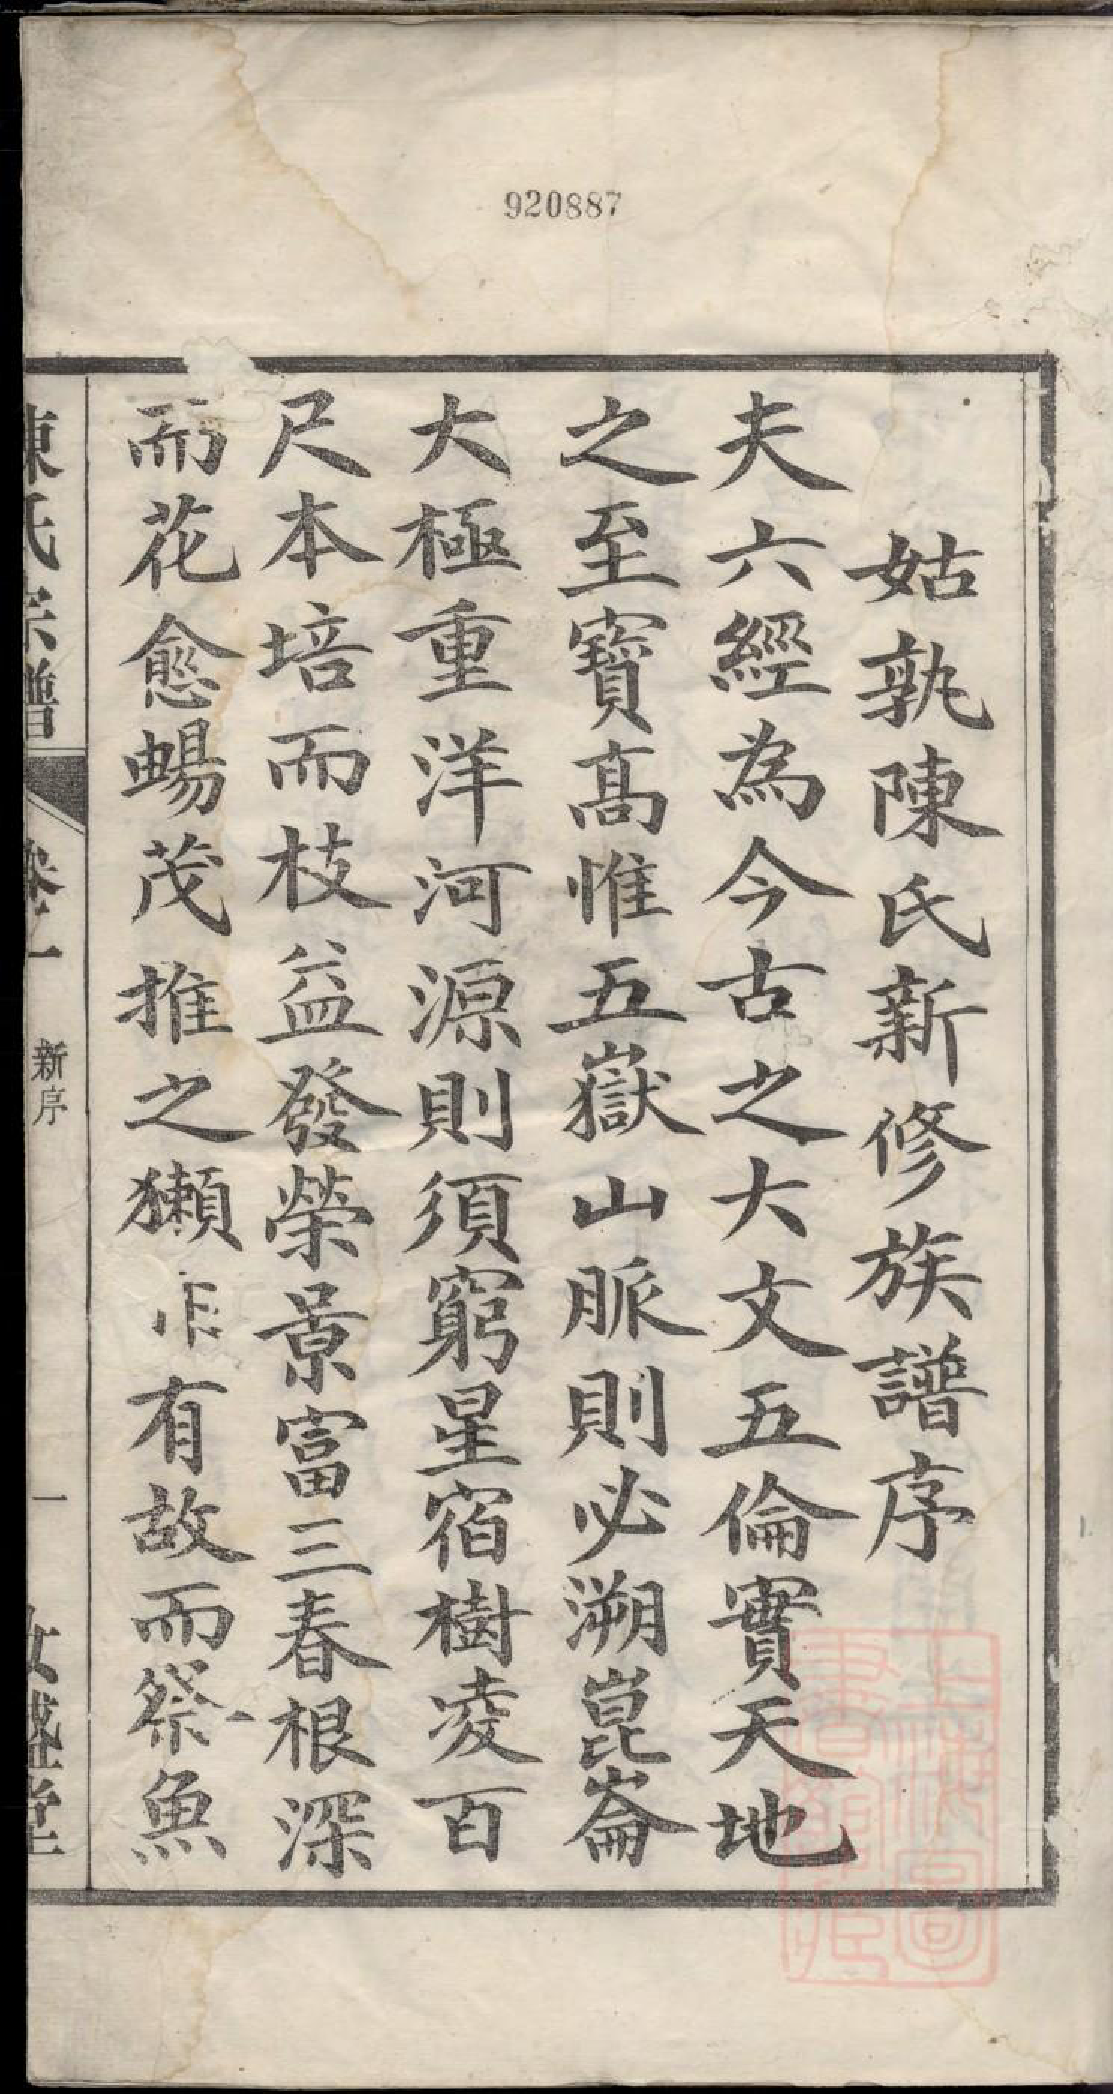 920887
姑孰陳氏新修族譜序
夫六經為今古之大文五倫實天地
之至寳髙惟五嶽山脈則必溯崑崙
大極重洋河源則須窮星宿樹凌百
尺本培而枝益發榮景富三春根深
而花愈暢茂推之獺 有故而祭魚
陳氏宗譜
卷一
新序
一
盛堂
上海圖書館藏